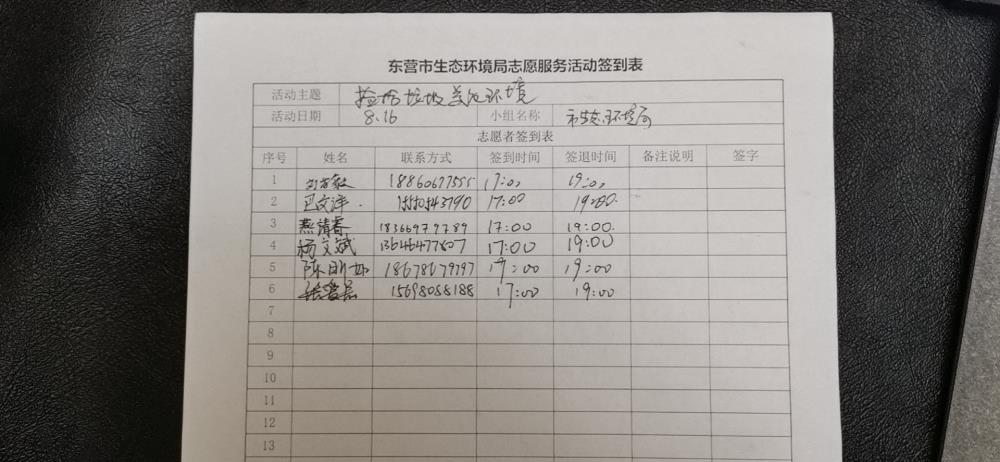 东营市生态环境局志愿服务活动签到表
活动主题 捡拾垃圾美化环境
活动日期 8.16 小组名称 市生态环境局
志愿者签到表
序号 姓名 联系方式 签到时间 签退时间 备注说明 签字
1 18860677555 17:00 19:00
2 巴文洋 17:00 19:00
3 燕清睿 18366979789 17:00 19:00
4 杨文斌 13646477807 17:00 19:00
5 18678679797 17:00 19:00
6 15698088188 17:00 19:00
7
8
9
10
11
12
13